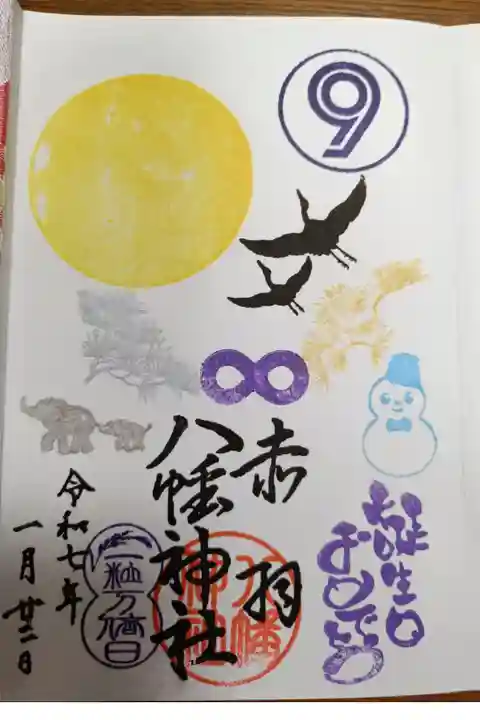 9
赤羽
八幡神社
誕生日
おめでとう
令和七年
一月廿二日
一粒万倍日
八幡神社